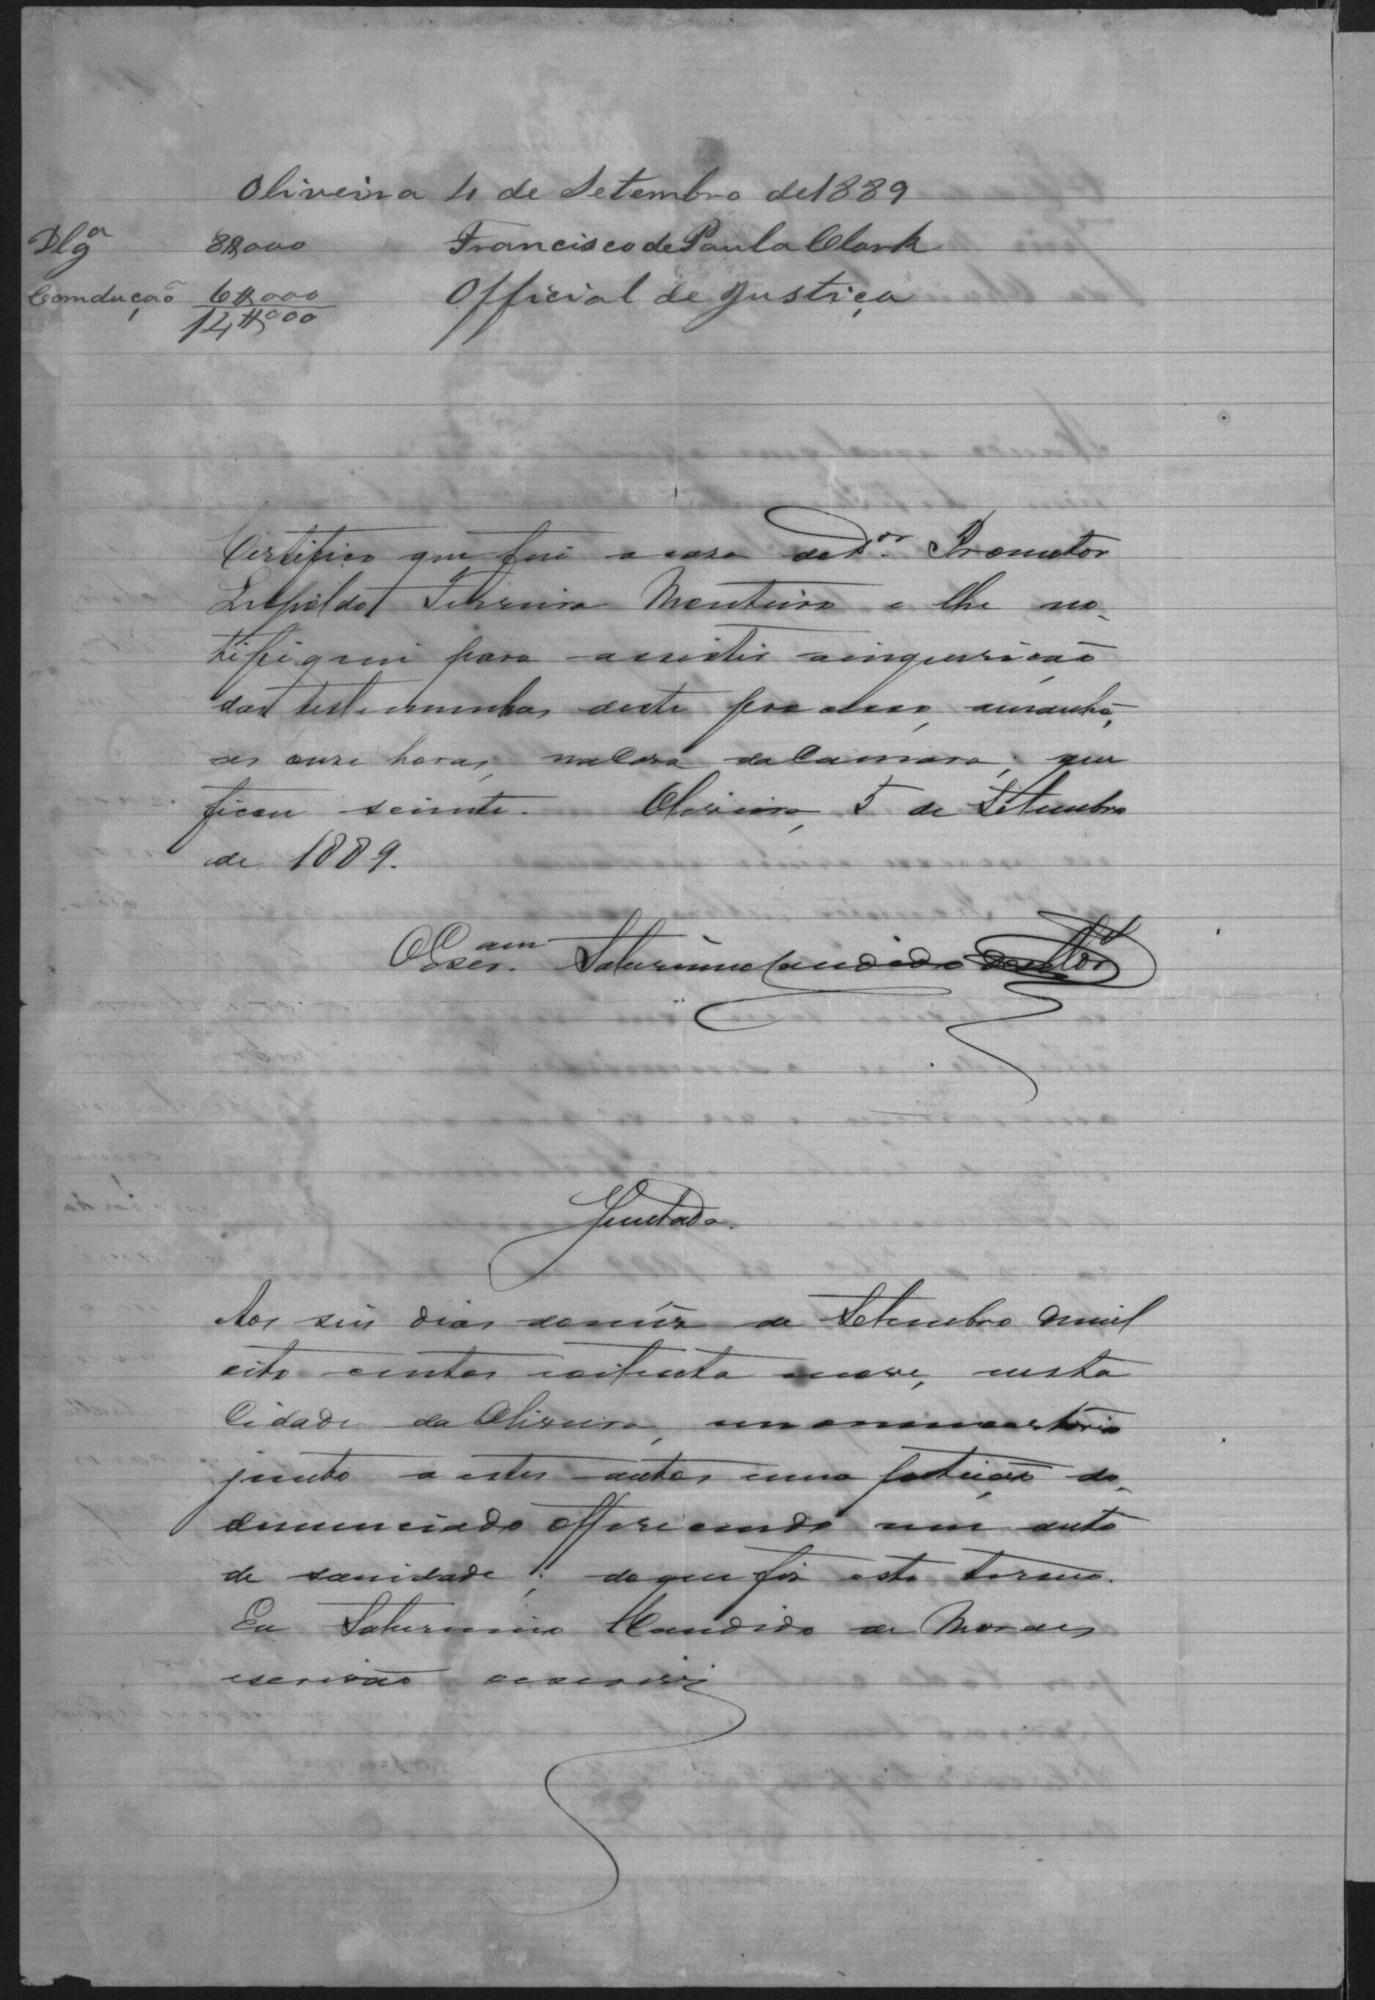 Oliveira 4 de Setembro de 1889
Dlgª 8$000 Francisco de Paula Clark
Comdução 6$000 Official de Justiça
14$000
Certifico que fui a casa do Dor. Promotor
Leopoldo Ferreira Monteiro e lhe no-
tifiquei para assistir a inquirição
das testemunhas deste processo, amanhã,
as onze horas, na Casa da Camara; que
ficou sciente. Oliveira, 5 de Setembro
de 1889.
O Escram. Saturnino Candido
Juntada.
Aos seis dias do mez de Setembro de mil
oito centos e oitenta e nove, nesta
Cidade da Oliveira, em meu cartorio
junto a estes autos uma petição do
denunciado offerecendo um auto
de sanidade; do que fiz este termo.
Eu Saturnino Candido de Moraes
escrivão escrevi